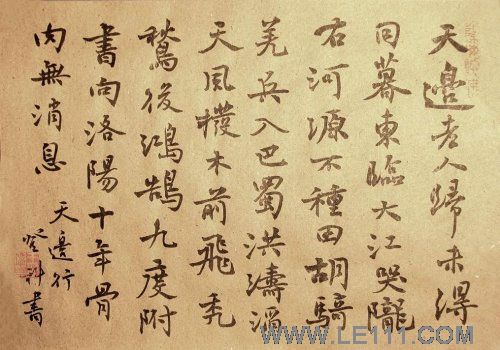 天邊老人歸未得
日暮東臨大江哭隴
右河源不種田胡騎
羌兵入巴蜀洪濤滔
天風拔木前飛禿
鶖後鴻鵠九度附
書向洛陽十年骨
肉無消息
天邊行
登科書
WWW.LE111.COM